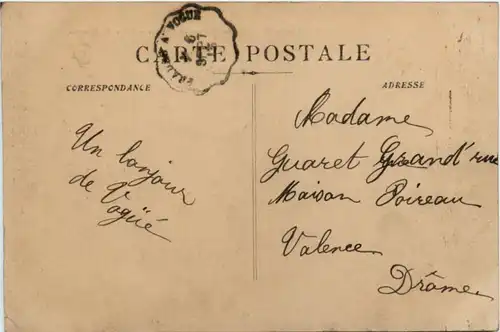 A VOGUÉ
CARTE POSTALE
CORRESPONDANCE
ADRESSE
Un bonjour
de Vogüé
Madame
Guaret Grand'rue
Maison Poireau
Valence
Drôme